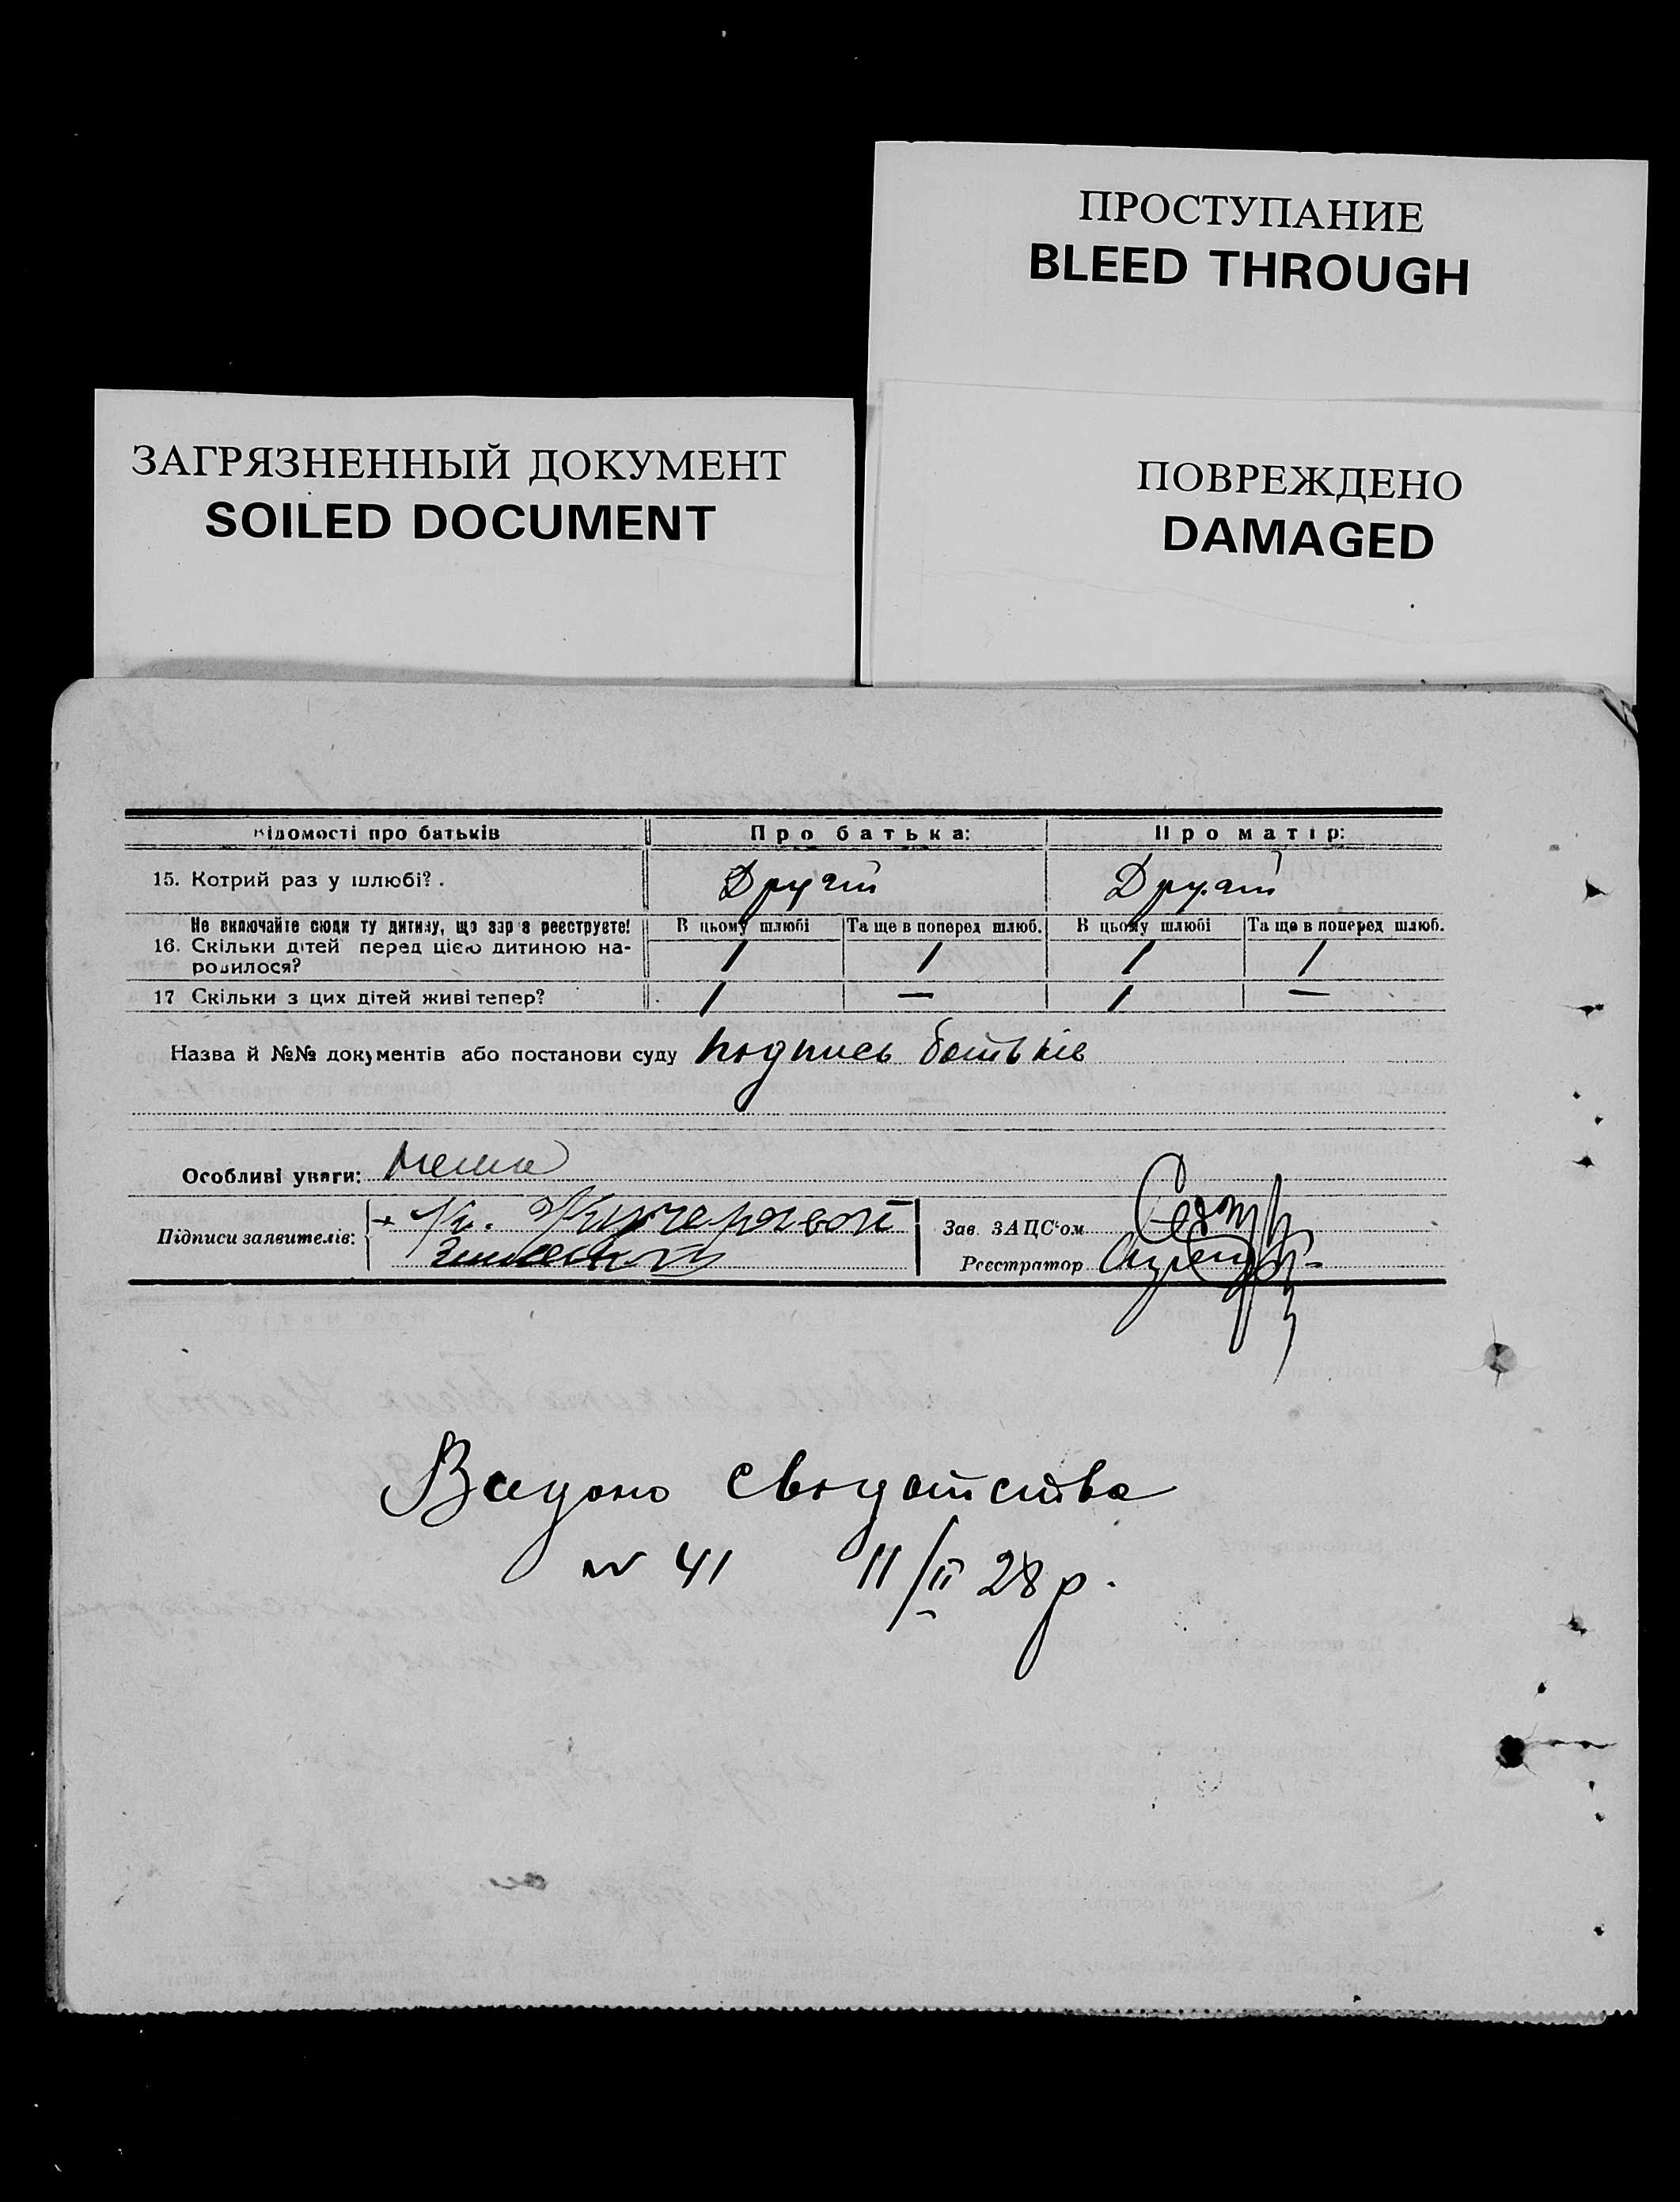 ПРОСТУПАНИЕ
BLEED THROUGH
ЗАГРЯЗНЕННЫЙ ДОКУМЕНТ
SOILED DOCUMENT
ПОВРЕЖДЕНО
DAMAGED
Відомості про батьків Про батька: Про матір:
15. Котрий раз у шлюбі? . Другий Другий
Не включайте сюди ту дитину, що зараз реєструєте! В цьому шлюбі Та ще в поперед шлюб. В цьому шлюбі Та ще в поперед шлюб.
16. Скільки дітей перед цією дитиною на-
родилося? 1 1 1 1
17 Скільки з цих дітей живі тепер? 1 — 1 —
Назва й №№ документів або постанови суду подпись батьків
Особливі уваги: нема
Підписи заявителів:
Зав. ЗАЦС'ом
Реєстратор
Видано свидотства
№ 41 11/II 28 р.